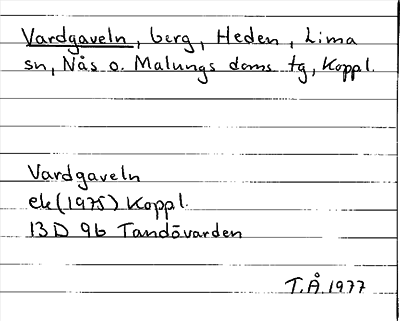 Vardgaveln, berg, Heden, Lima
sn, Nås o. Malungs doms tg, Koppl.
Vardgaveln
ek (1975) Koppl.
13 D 9b Tandövarden
T.Å. 1977